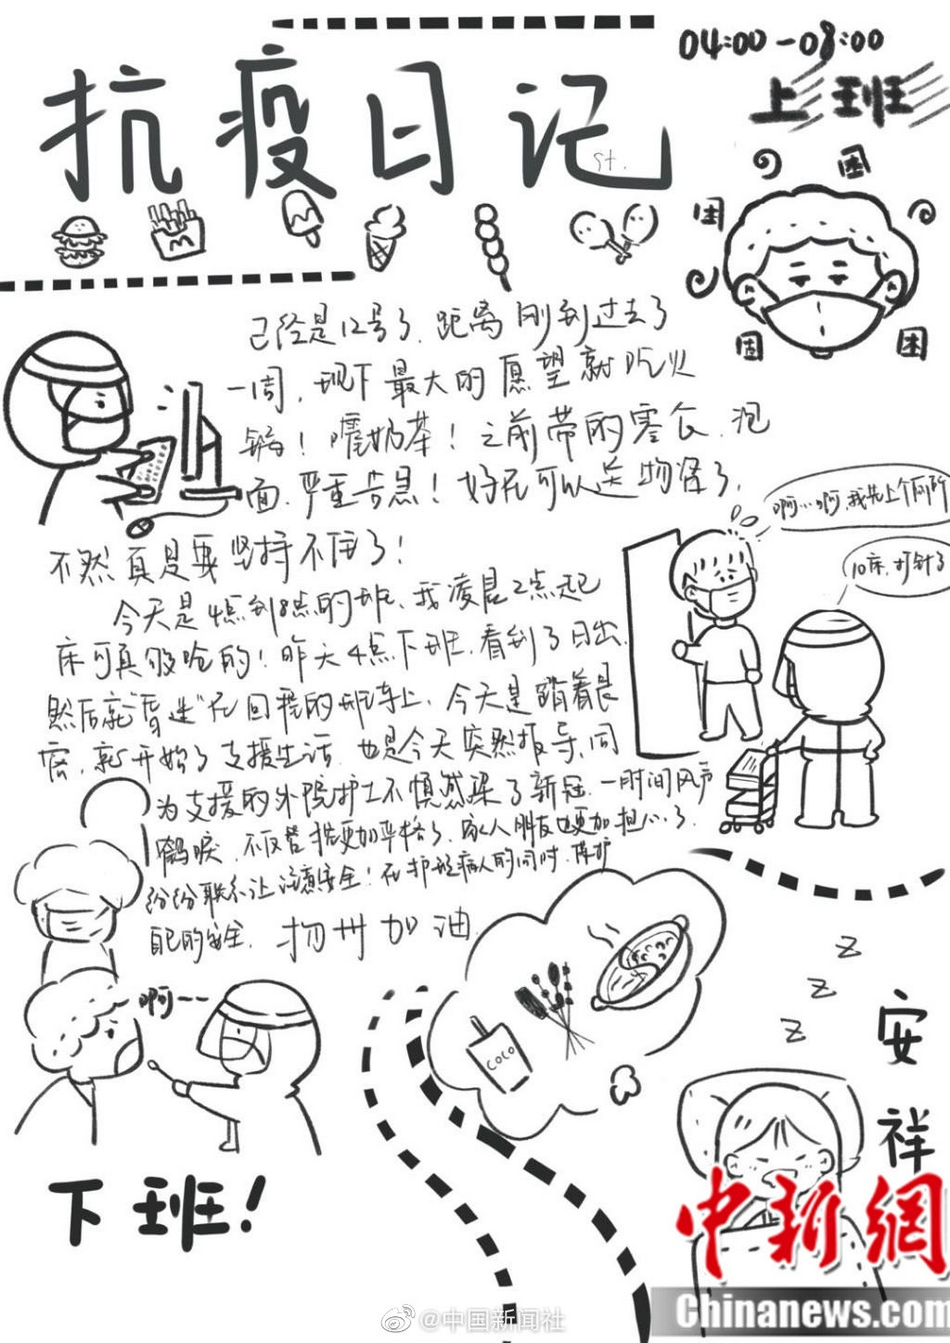 04:00-08:00
上班
抗疫日记
st.
困
困
困
困
已经是12号了、距离刚到过去了
一周，现下最大的愿望就吃火
锅！嘬奶茶！之前带的零食、泡
面、严重告急！好在可以送物资了，
不然真是要坚持不住了！
今天是4点到8点的班、我凌晨2点起
床可真够呛的！昨天4点下班、看到了日出、
然后就"昏迷"在回程的班车上、今天是踏着晨
雾、就开始了支援生活、也是今天突然报导、同
为支援的外院护士不慎感染了新冠、一时间风声
鹤唳、不仅管控更加严格了、家人朋友也更加担心了、
纷纷联系让注意安全！在护好病人的同时、保护
自己的安全、扬州加油
啊…啊，我先上个厕所
10床，打针了
啊--
COCO
z
z
z
安
祥
下班！
中新網
@中国新闻社
Chinanews.com